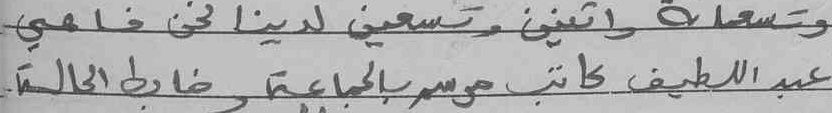 وتسعمائة واثنين وتسعين لدينا نحن فاهمي
عبد اللطيف كاتب موسم بالجماعة وضابط الحالة